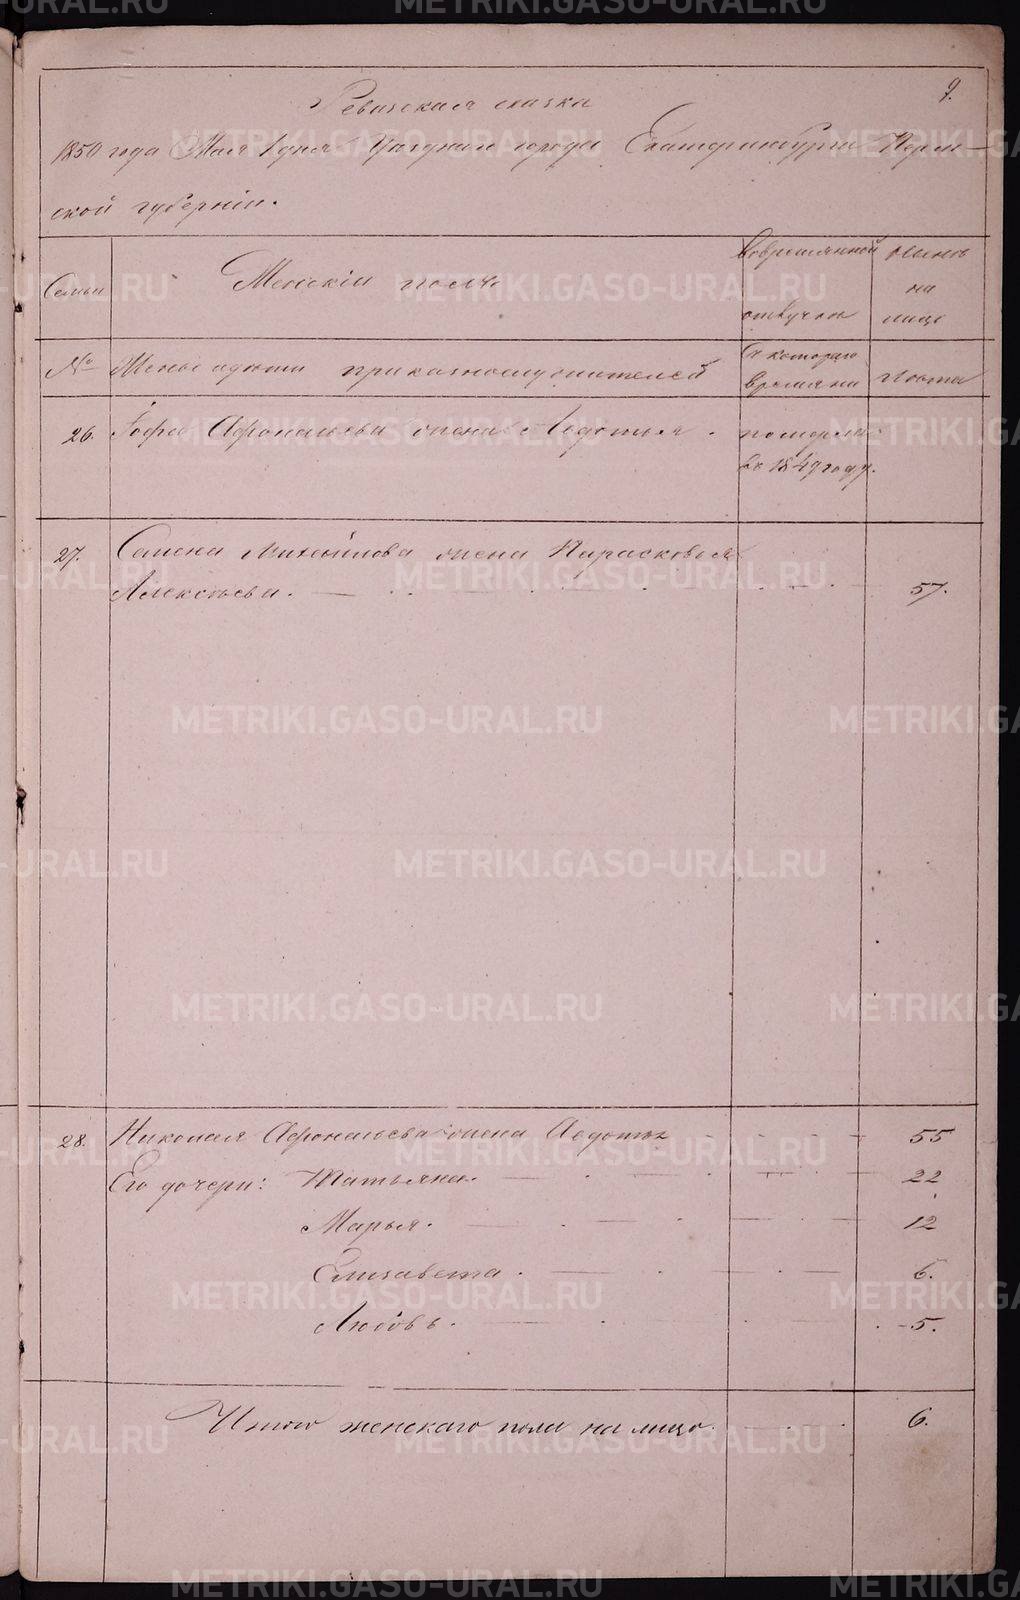 9.
Ревизская сказка
1850 года Мая 1 дня Уезднаго города Екатеринбурга Перм-
ской губернiи.
Семьи
Женскiй полъ.
Вовременной
отлучки
Нынѣ
на
лицо
№
Жены и дѣти приказнослужителей
Съ котораго
времяни
Лѣта
26.
Афонасьева жена Авдотья.
померла
въ 1849 году.
27.
Семена Михайлова жена Парасковья
Алексѣева.
57.
28.
Николая Афонасьева жена Авдотья
55
Его дочери: Татьяна.
22
Марья.
12
Елизавета.
6.
Любовь.
5.
Итого женскаго пола на лицо.
6.
METRIKI.GASO-URAL.RU